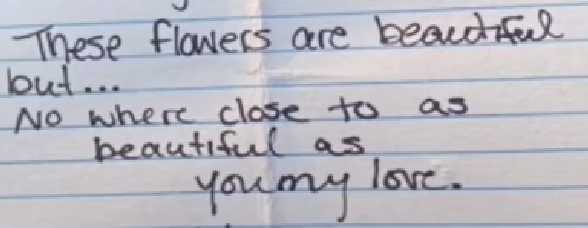 These flowers are beautiful
but...
No where close to as
beautiful as
you my love.